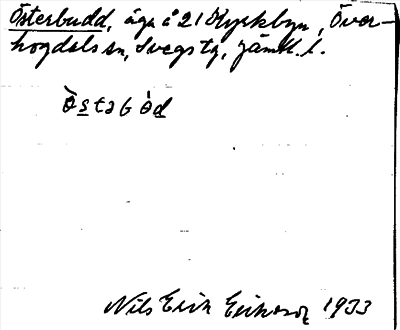 Österbudd, äga å 21 Kyrkbyn, Över-
hogdals sn, Svegs tg, Jämtl. l.
ö̀stəbö̀d
Nils Erik Eriksson 1933